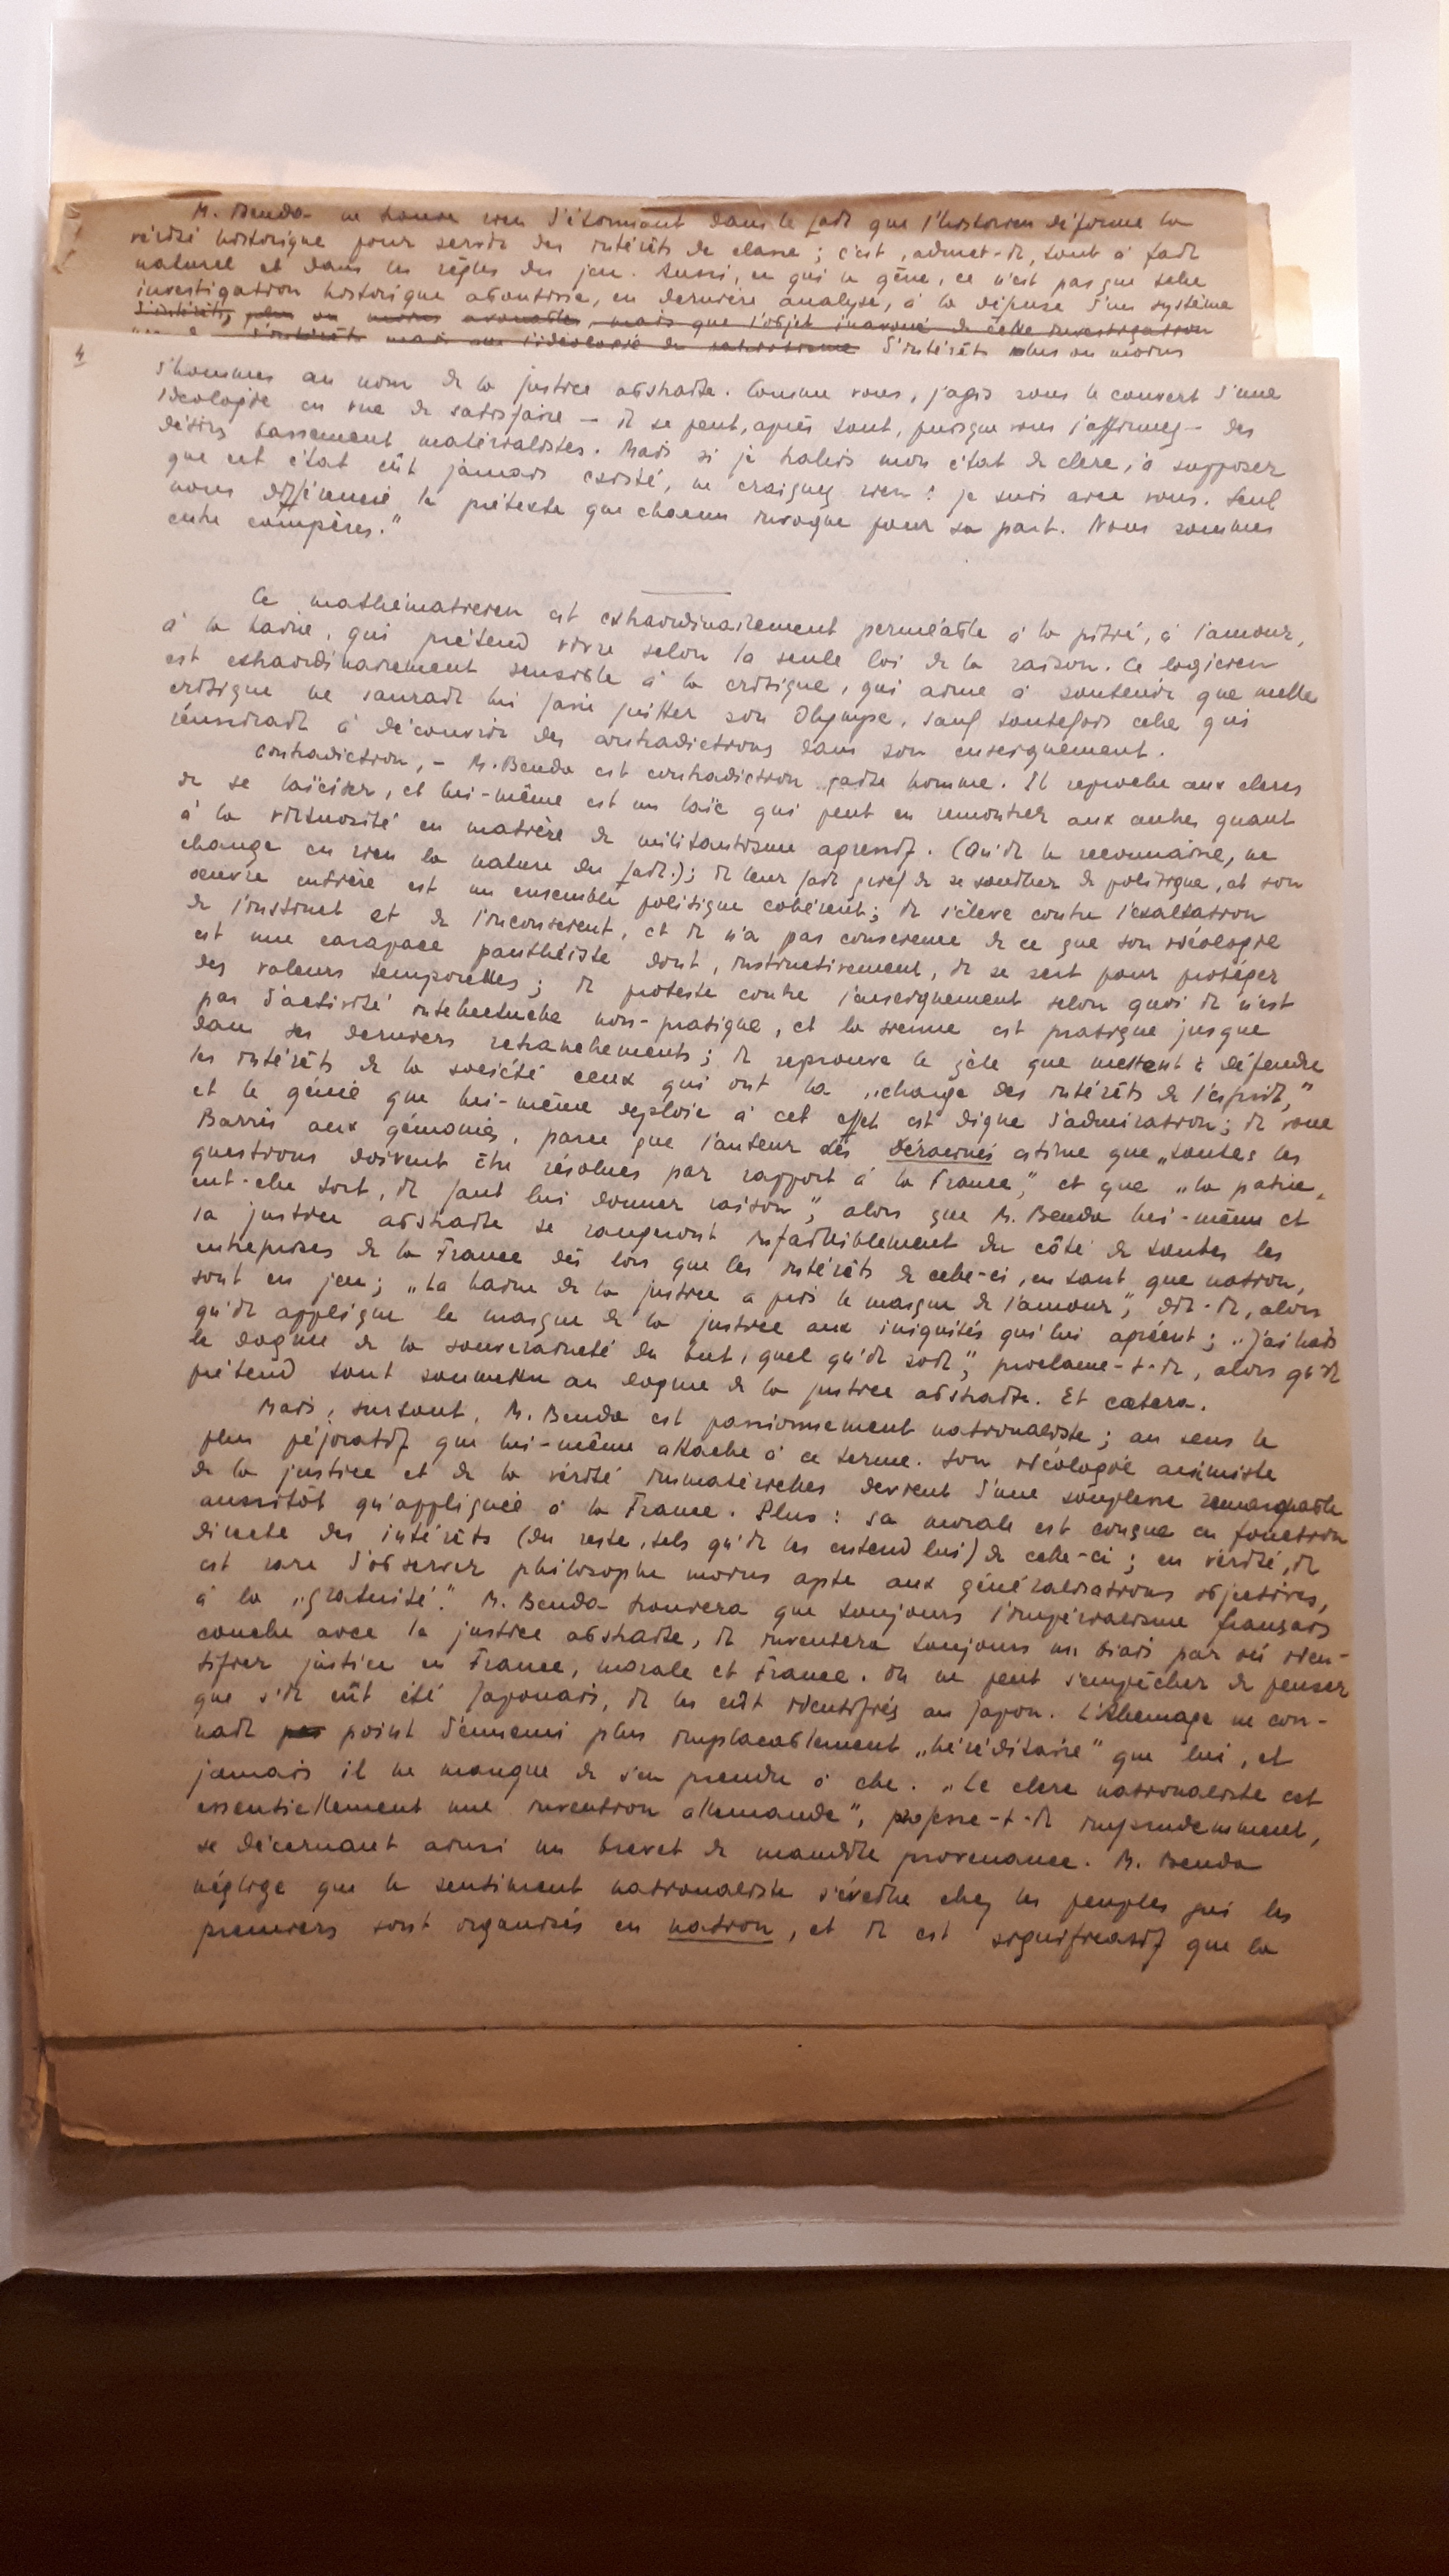 M. Benda ne trouve rien d'étonnant dans le fait que l'historien déforme la
vérité historique pour servir des intérêts de classe ; c'est, admet-il, tout à fait
naturel et dans les règles du jeu. Aussi, ce qui le gêne, ce n'est pas que telle
investigation historique aboutisse, en dernière analyse, à la défense d'un système
d'intérêts plus ou moins avouables, mais que l'objet inavoué de cette investigation
d'intérêts mais que l'idéologie du d'intérêts plus ou moins
4
d'hommes au nom de la justice abstraite. Comme vous, j'agis sous le couvert d'une
idéologie en vue de satisfaire — il se peut, après tout, puisque vous l'affirmez — des
désirs bassement matérialistes. Mais si je trahis mon état de clerc, à supposer
que cet état eût jamais existé, ne craignez rien : je suis avec vous. Seul
nous différencie le prétexte que chacun invoque pour sa part. Nous sommes
entre compères."
Ce mathématicien est extraordinairement perméable à la pitié, à l'amour,
à la haine, qui prétend vivre selon la seule loi de la raison. Ce logicien
est extraordinairement sensible à la critique, qui aime à soutenir que nulle
critique ne saurait lui faire quitter son Olympe, sauf toutefois celle qui
réussirait à découvrir des contradictions dans son enseignement.
Contradiction, — M. Benda est contradiction faite homme. Il reproche aux clercs
de se laïciser, et lui-même est un laïc qui peut en remontrer aux autres quant
à la virtuosité en matière de militantisme agressif. (Qu'il le reconnaisse, ne
change en rien la nature du fait.) ; il leur fait grief de se souiller de politique, et son
œuvre entière est un ensemble politique cohérent ; il s'élève contre l'exaltation
de l'instinct et de l'inconscient, et il n'a pas conscience de ce que son idéologie
est une carapace panthéiste dont, instinctivement, il se sert pour protéger
des valeurs temporelles ; il proteste contre l'enseignement selon quoi il n'est
pas d'activité intellectuelle non-pratique, et la sienne est pratique jusque
dans ses derniers retranchements ; il réprouve le zèle que mettent à défendre
les intérêts de la société ceux qui ont la „charge des intérêts de l'esprit,"
et le génie que lui-même déploie à cet effet est digne d'admiration ; il voue
Barrès aux gémonies, parce que l'auteur des Déracinés estime que „toutes les
questions doivent être résolues par rapport à la France," et que „la patrie,
eut-elle tort, il faut lui donner raison", alors que M. Benda lui-même et
sa justice abstraite se rangeront infailliblement du côté de toutes les
entreprises de la France dès lors que les intérêts de celle-ci, en tant que nation,
sont en jeu ; „La haine de la justice a pris le masque de l'amour", dit-il, alors
qu'il applique le masque de la justice aux iniquités qui lui agréent ; „J'ai haï
le dogme de la souveraineté du but, quel qu'il soit", proclame-t-il, alors qu'il
prétend tout soumettre au dogme de la justice abstraite. Et cætera.
Mais, surtout, M. Benda est passionnément nationaliste ; au sens le
plus péjoratif que lui-même attache à ce terme. Son idéologie animiste
de la justice et de la vérité immatérielles devient d'une souplesse remarquable
aussitôt qu'appliquée à la France. Plus : sa morale est conçue en fonction
directe des intérêts (du reste, tels qu'il les entend lui) de celle-ci ; en vérité, il
est rare d'observer philosophe moins apte aux généralisations objectives,
à la „gratuité". M. Benda trouvera que toujours l'impérialisme français
couche avec la justice abstraite, il inventera toujours un biais par où iden-
tifier justice et France, morale et France. On ne peut s'empêcher de penser
que s'il eût été Japonais, il les eût identifiés au Japon. L'Allemagne ne con-
naît pas point d'ennemi plus implacablement „héréditaire" que lui, et
jamais il ne manque de s'en prendre à elle. „Le clerc nationaliste est
essentiellement une invention allemande", professe-t-il imprudemment,
se décernant ainsi un brevet de maudite provenance. M. Benda
néglige que le sentiment nationaliste s'éveille chez les peuples qui les
premiers sont organisés en nation, et il est significatif que la